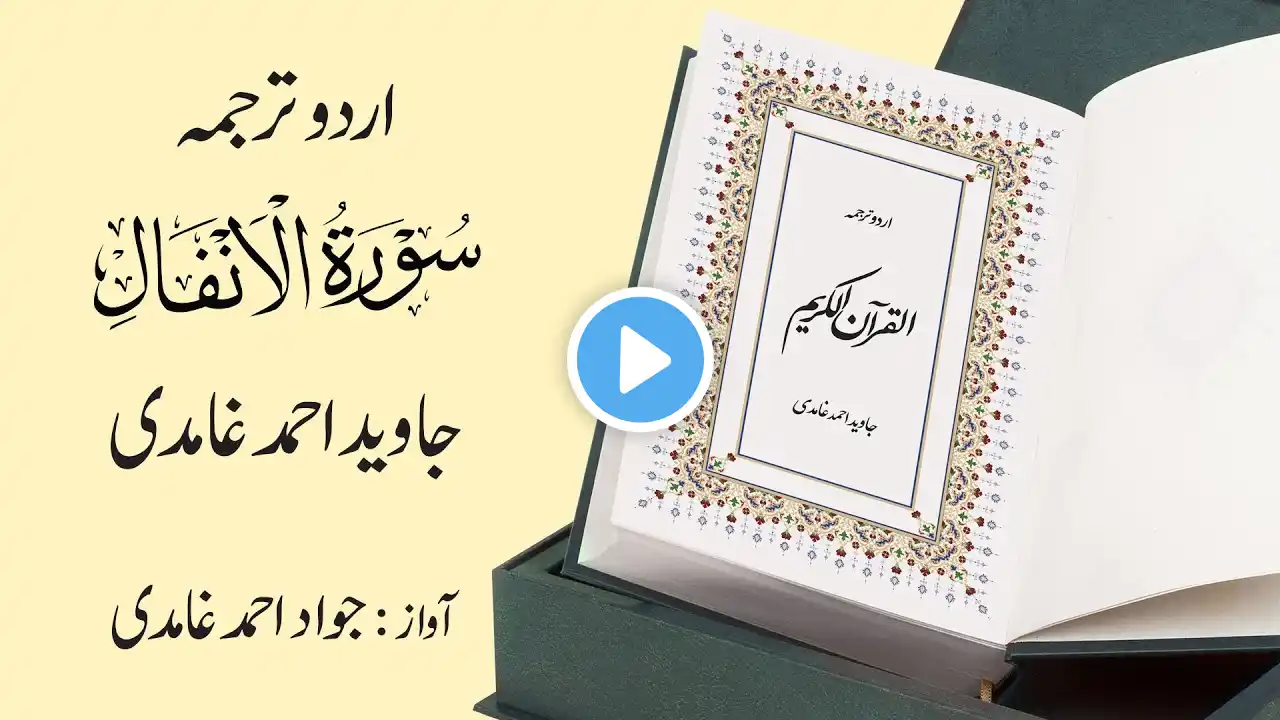 اردو ترجمہ
سُوْرَةُ الْاَنْفَالِ
جاوید احمد غامدی
آواز : جواد احمد غامدی
اردو ترجمہ
القرآن الکریم
جاوید احمد غامدی